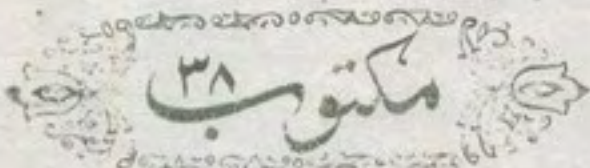 مکتوب ۳۸